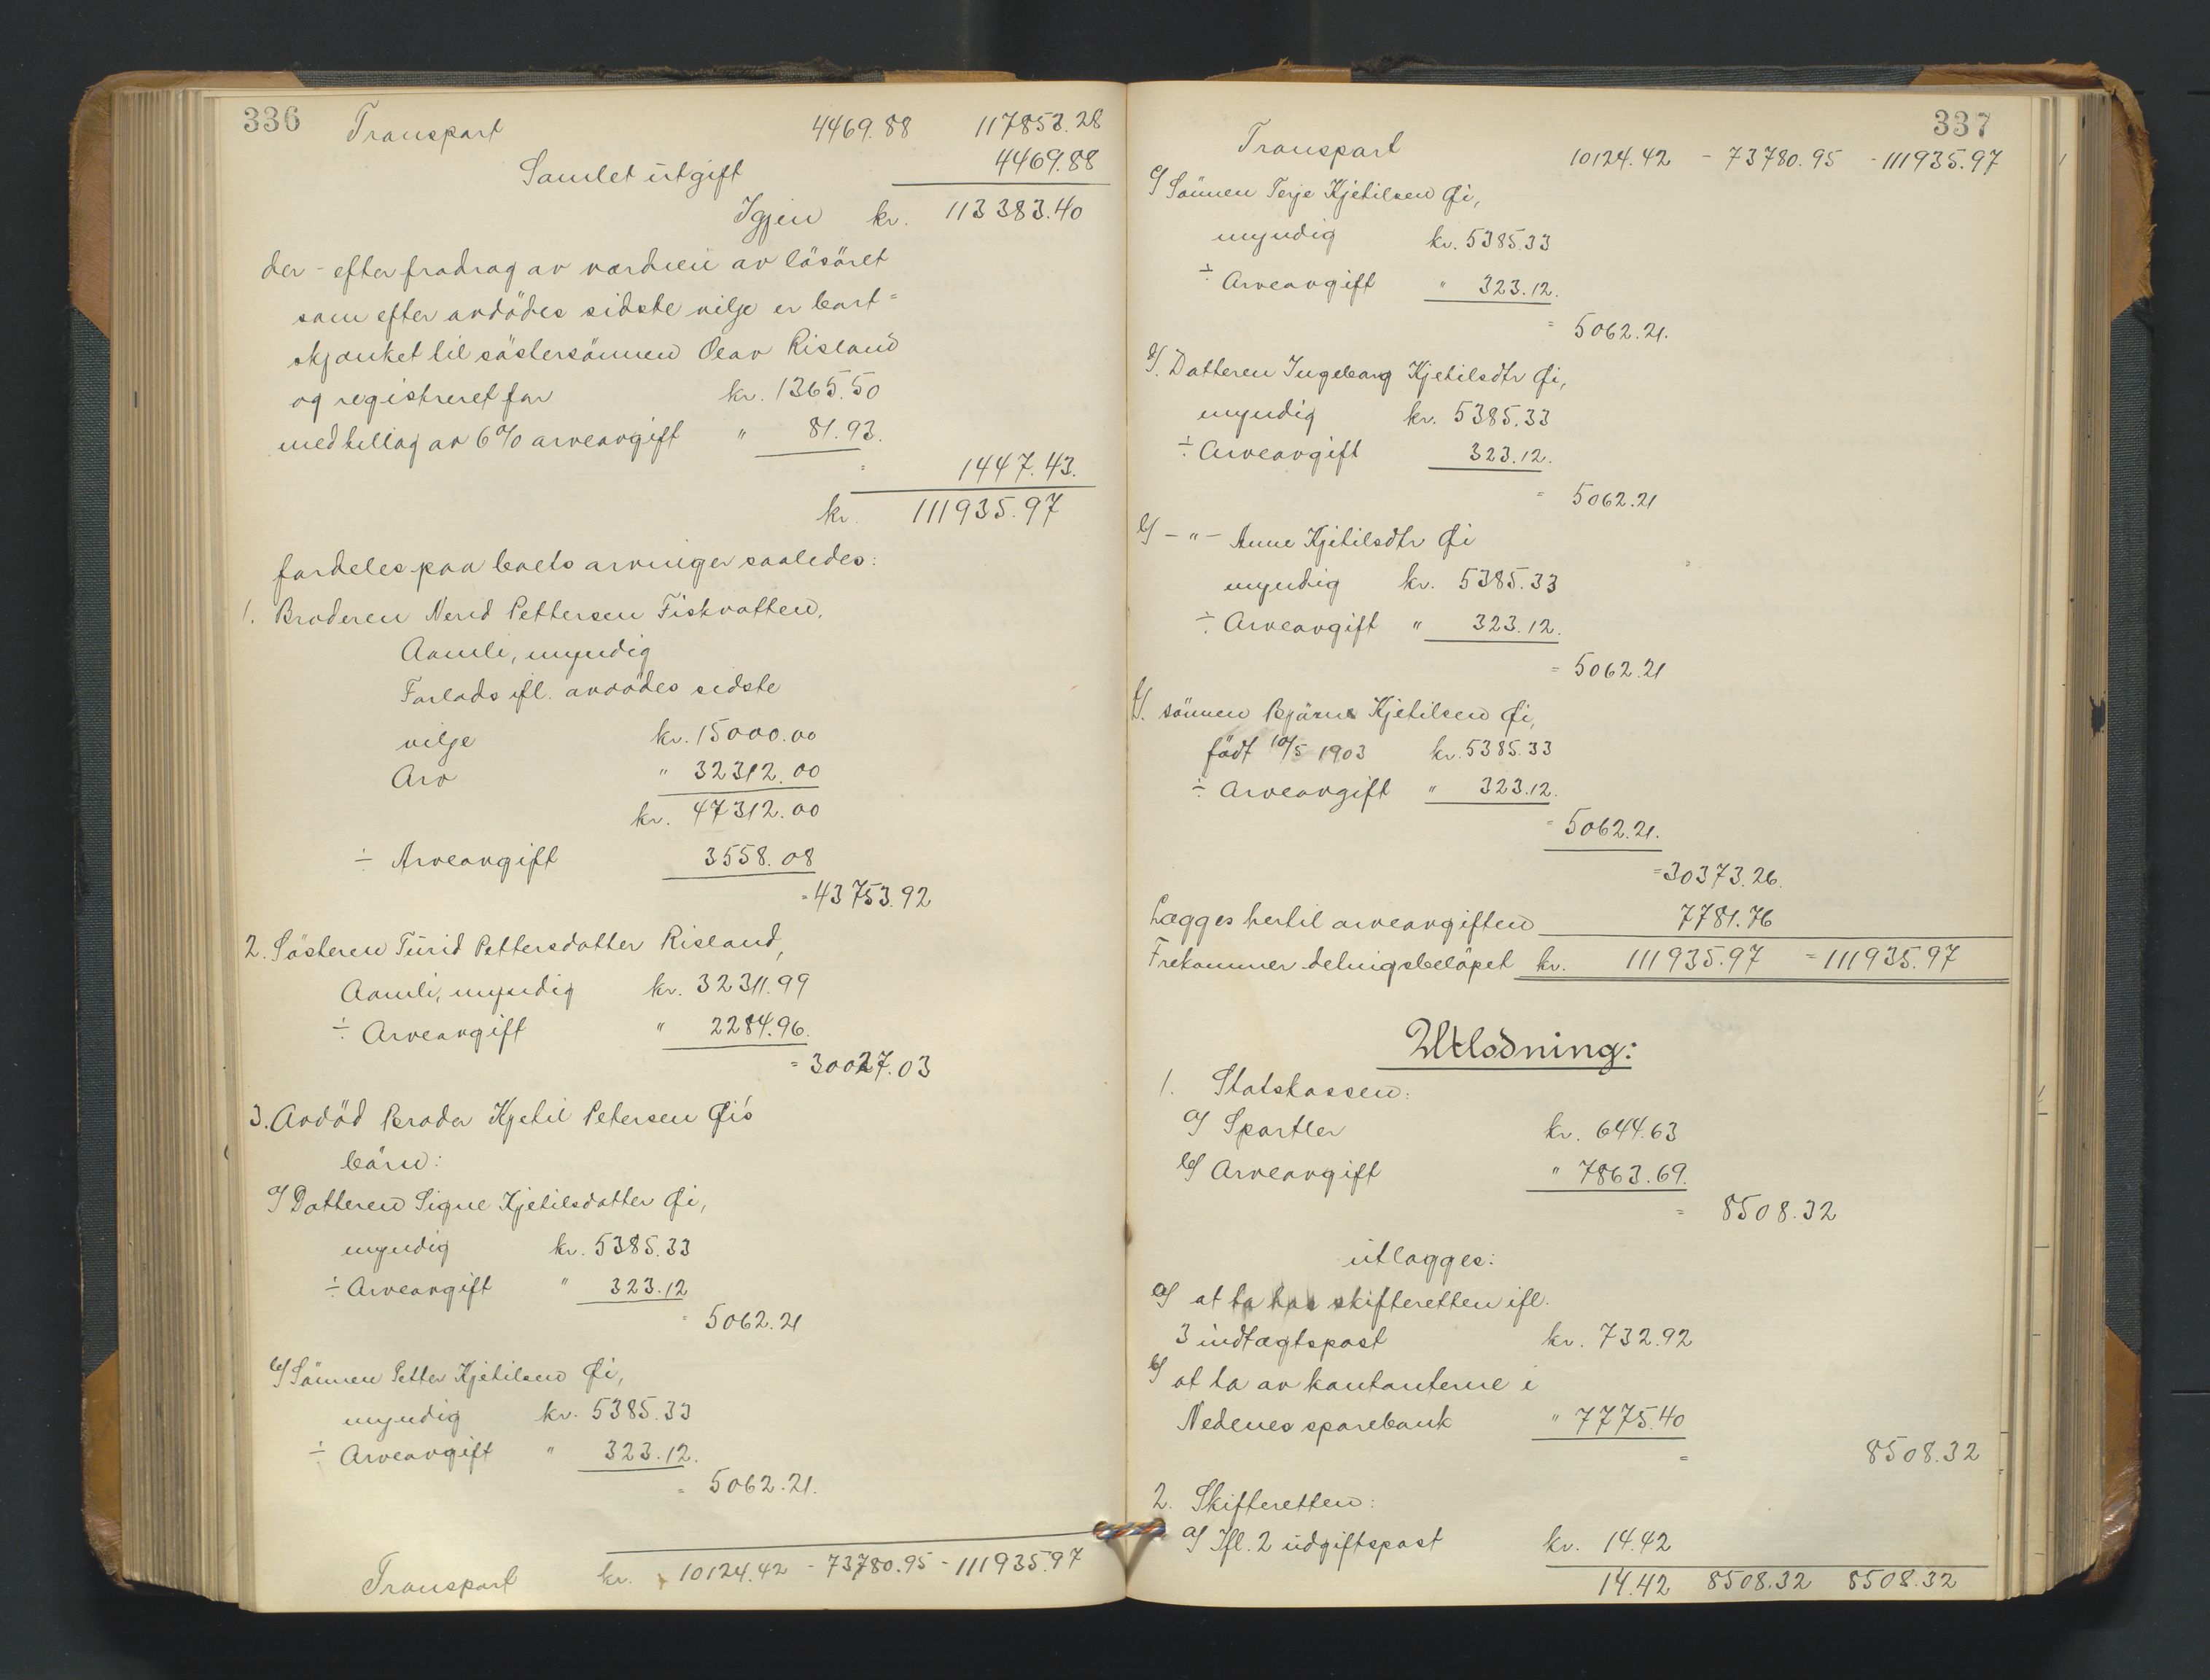 336
Transport 4469.88 117853.28
Samlet utgift 4469.88
Igjen kr. 113383.40
der - efter fradrag av værdien av lösöret
som efter avdödes sidste vilje er bort=
skjænket til söstersönnen Olav Risland
og registreret for kr. 1365.50
med tillæg av 6% arveavgift " 81.93.
= 1447.43.
kr. 111935.97
fordeles paa boets arvinger saaledes:
1. Broderen Nerid Pettersen Fiskvatten,
Aamli, myndig
Forlods ifl. avdödes sidste
vilje kr. 15000.00
Arv " 32312.00
kr. 47312.00
÷ Arveavgift 3558.08
= 43753.92
2. Sösteren Turid Pettersdatter Risland,
Aamli, myndig kr. 32311.99
÷ Arveavgift " 2284.96.
= 30027.03
3. Avdöd Broder Kjetil Petersen Øi's
börn:
a/ Datteren Signe Kjetilsdatter Øi,
myndig kr. 5385.33
÷ Arveavgift " 323.12
= 5062.21
b/ Sönnen Petter Kjetilsen Øi,
myndig kr. 5385.33
÷ Arveavgift " 323.12.
= 5062.21.
Transport kr. 10124.42 - 73780.95 - 111935.97
337
Transport 10124.42 - 73780.95 - 111935.97
c/ Sönnen Terje Kjetilsen Øi,
myndig kr. 5385.33
÷ Arveavgift " 323.12.
= 5062.21.
d/. Datteren Ingeborg Kjetilsdtr Øi,
myndig kr. 5385.33
÷ Arveavgift 323.12.
= 5062.21
e/ - " - Anne Kjetilsdtr Øi
myndig kr. 5385.33
÷ Arveavgift " 323.12.
= 5062.21
f/. sönnen Bjarne Kjetilsen Øi,
födt 10/5 1903 kr. 5385.33
÷ Arveavgift " 323.12.
= 5062.21.
= 30373.26.
Lægges hertil arveavgiften 7781.76
Frekommer delingsbelöpet kr. 111935.97 = 111935.97
Utlodning:
1. Statskassen:
a/ Sportler kr. 644.63
b/ Arveavgift " 7863.69.
= 8508.32
utlægges:
a/ at ta hos skifteretten ifl.
3 indtægtspost kr. 732.92
b/ at ta av kontanterne i
Nedenes sparebank " 7775.40
= 8508.32
2. Skifteretten:
a/ Ifl. 2 udgiftspost kr. 14.42
14.42 8508.32 8508.32